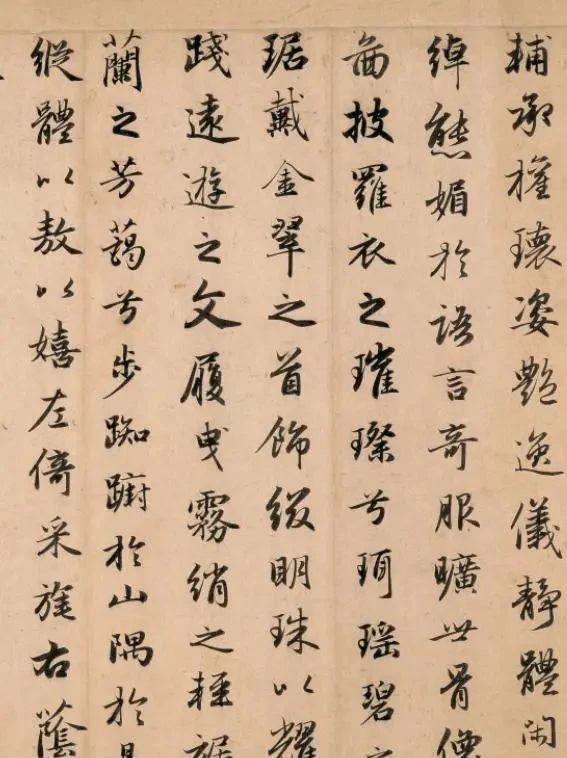 輔承權瓌姿艷逸儀靜體閑
綽態媚於語言奇服曠世骨像
啚披羅衣之璀璨兮珥瑤碧之
琚戴金翠之首飾綴明珠以耀
踐遠遊之文履曳霧綃之輕裾
蘭之芳藹兮步踟躕於山隅於是
縱體以敖以嬉左倚采旄右蔭